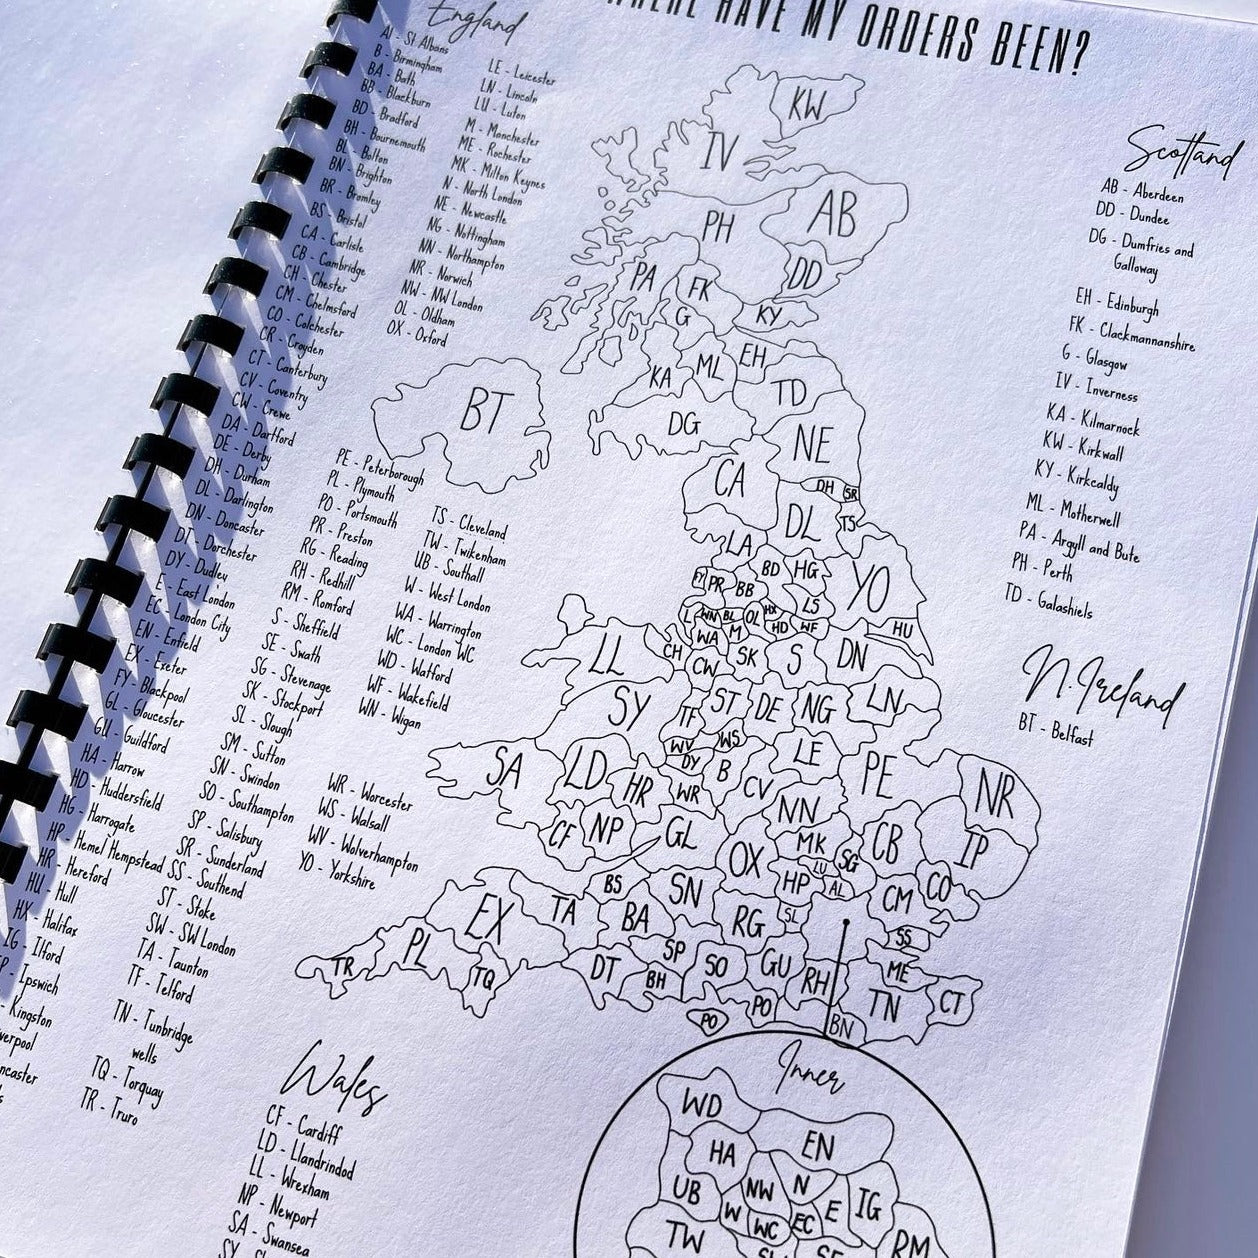 WHERE HAVE MY ORDERS BEEN?
England
Al - St Albans
B - Birmingham
BA - Bath
BB - Blackburn
BD - Bradford
BH - Bournemouth
BL - Bolton
BN - Brighton
BR - Bromley
BS - Bristol
CA - Carlisle
CB - Cambridge
CH - Chester
CM - Chelmsford
CO - Colchester
CR - Croyden
CT - Canterbury
CV - Coventry
CW - Crewe
DA - Dartford
DE - Derby
DH - Durham
DL - Darlington
DN - Doncaster
DT - Dorchester
DY - Dudley
E - East London
EC - London City
EN - Enfield
EX - Exeter
FY - Blackpool
GL - Gloucester
GU - Guildford
HA - Harrow
HD - Huddersfield
HG - Harrogate
HP - Hemel Hempstead
HR - Hereford
HU - Hull
HX - Halifax
IG - Ilford
- Ipswich
- Kingston
LE - Leicester
LN - Lincoln
LU - Luton
M - Manchester
ME - Rochester
MK - Milton Keynes
N - North London
NE - Newcastle
NG - Nottingham
NN - Northampton
NR - Norwich
NW - NW London
OL - Oldham
OX - Oxford
PE - Peterborough
PL - Plymouth
PO - Portsmouth
PR - Preston
RG - Reading
RH - Redhill
RM - Romford
S - Sheffield
SE - Swath
SG - Stevenage
SK - Stockport
SL - Slough
SM - Sutton
SN - Swindon
SO - Southampton
SP - Salisbury
SR - Sunderland
SS - Southend
ST - Stoke
SW - SW London
TA - Taunton
TF - Telford
TN - Tunbridge
wells
TQ - Torquay
TR - Truro
TS - Cleveland
TW - Twikenham
UB - Southall
W - West London
WA - Warrington
WC - London WC
WD - Watford
WF - Wakefield
WN - Wigan
WR - Worcester
WS - Walsall
WV - Wolverhampton
YO - Yorkshire
Wales
CF - Cardiff
LD - Llandrindod
LL - Wrexham
NP - Newport
SA - Swansea
Scotland
AB - Aberdeen
DD - Dundee
DG - Dumfries and
Galloway
EH - Edinburgh
FK - Clackmannanshire
G - Glasgow
IV - Inverness
KA - Kilmarnock
KW - Kirkwall
KY - Kirkcaldy
ML - Motherwell
PA - Argyll and Bute
PH - Perth
TD - Galashiels
N.Ireland
BT - Belfast
KW
IV
AB
PH
DD
PA
FK
G
KY
EH
ML
KA
TD
BT
DG
NE
CA
DH
SR
DL
TS
LA
BD
HG
YO
FY
PR
BB
LS
L
WN
BL
OL
HX
HD
WF
HU
WA
M
CH
LL
CW
SK
S
DN
LN
SY
TF
ST
DE
NG
WV
WS
LE
SA
LD
HR
DY
B
WR
CV
PE
NR
NN
CF
NP
GL
MK
OX
SG
CB
IP
LU
HP
AL
CO
CM
BS
SN
EX
TA
BA
RG
SL
SS
PL
SP
SO
GU
RH
ME
TR
TQ
DT
BH
PO
TN
CT
PO
BN
Inner
WD
EN
HA
NW
N
IG
UB
W
WC
EC
E
TW
RM